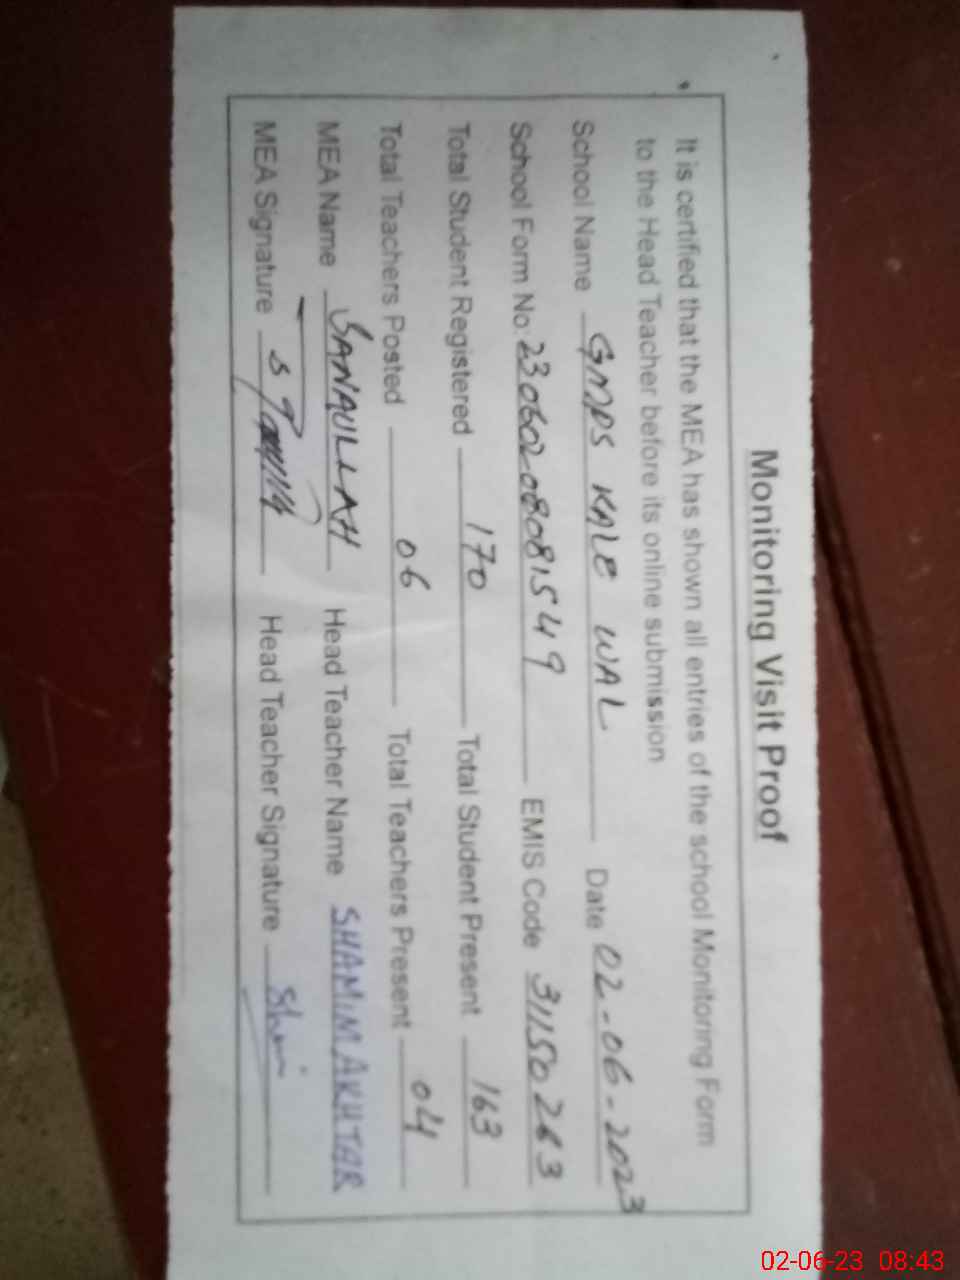 Monitoring Visit Proof
It is certified that the MEA has shown all entries of the school Monitoring Form
to the Head Teacher before its online submission
School Name GMPS KALE WAL Date 02-06-2023
School Form No: 23060208081549 EMIS Code 31150263
Total Student Registered 170 Total Student Present 163
Total Teachers Posted 06 Total Teachers Present 04
MEA Name SANAULLAH Head Teacher Name SHAMIM AKHTAR
MEA Signature Head Teacher Signature
02-06-23 08:43